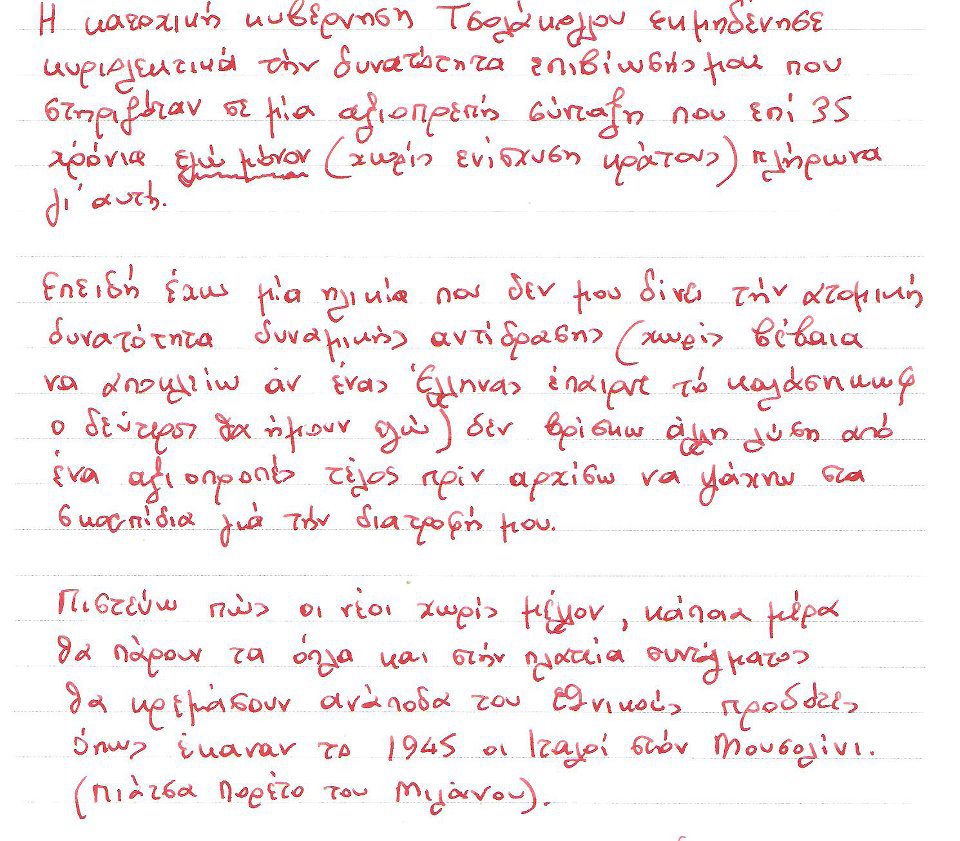 Η κατοχική κυβέρνηση Τσολάκογλου εκμηδένησε
κυριολεκτικά την δυνατότητα επιβίωσής μου που
στηριζόταν σε μία αξιοπρεπή σύνταξη που επί 35
χρόνια εγώ μόνον (χωρίς ενίσχυση κράτους) πλήρωνα
γι' αυτή.
Επειδή έχω μία ηλικία που δεν μου δίνει την ατομική
δυνατότητα δυναμικής αντίδρασης (χωρίς βέβαια
να αποκλείω αν ένας Έλληνας έπαιρνε το καλάσνικωφ
ο δεύτερος θα ήμουν εγώ) δεν βρίσκω άλλη λύση από
ένα αξιοπρεπές τέλος πρίν αρχίσω να ψάχνω στα
σκουπίδια γιά την διατροφή μου.
Πιστεύω πώς οι νέοι χωρίς μέλλον, κάποια μέρα
θα πάρουν τα όπλα και στήν πλατεία συντάγματος
θα κρεμάσουν ανάποδα του εθνικούς προδότες
όπως έκαναν το 1945 οι Ιταλοί στόν Μουσολίνι.
(πιάτσα Πορέτο του Μιλάνου).